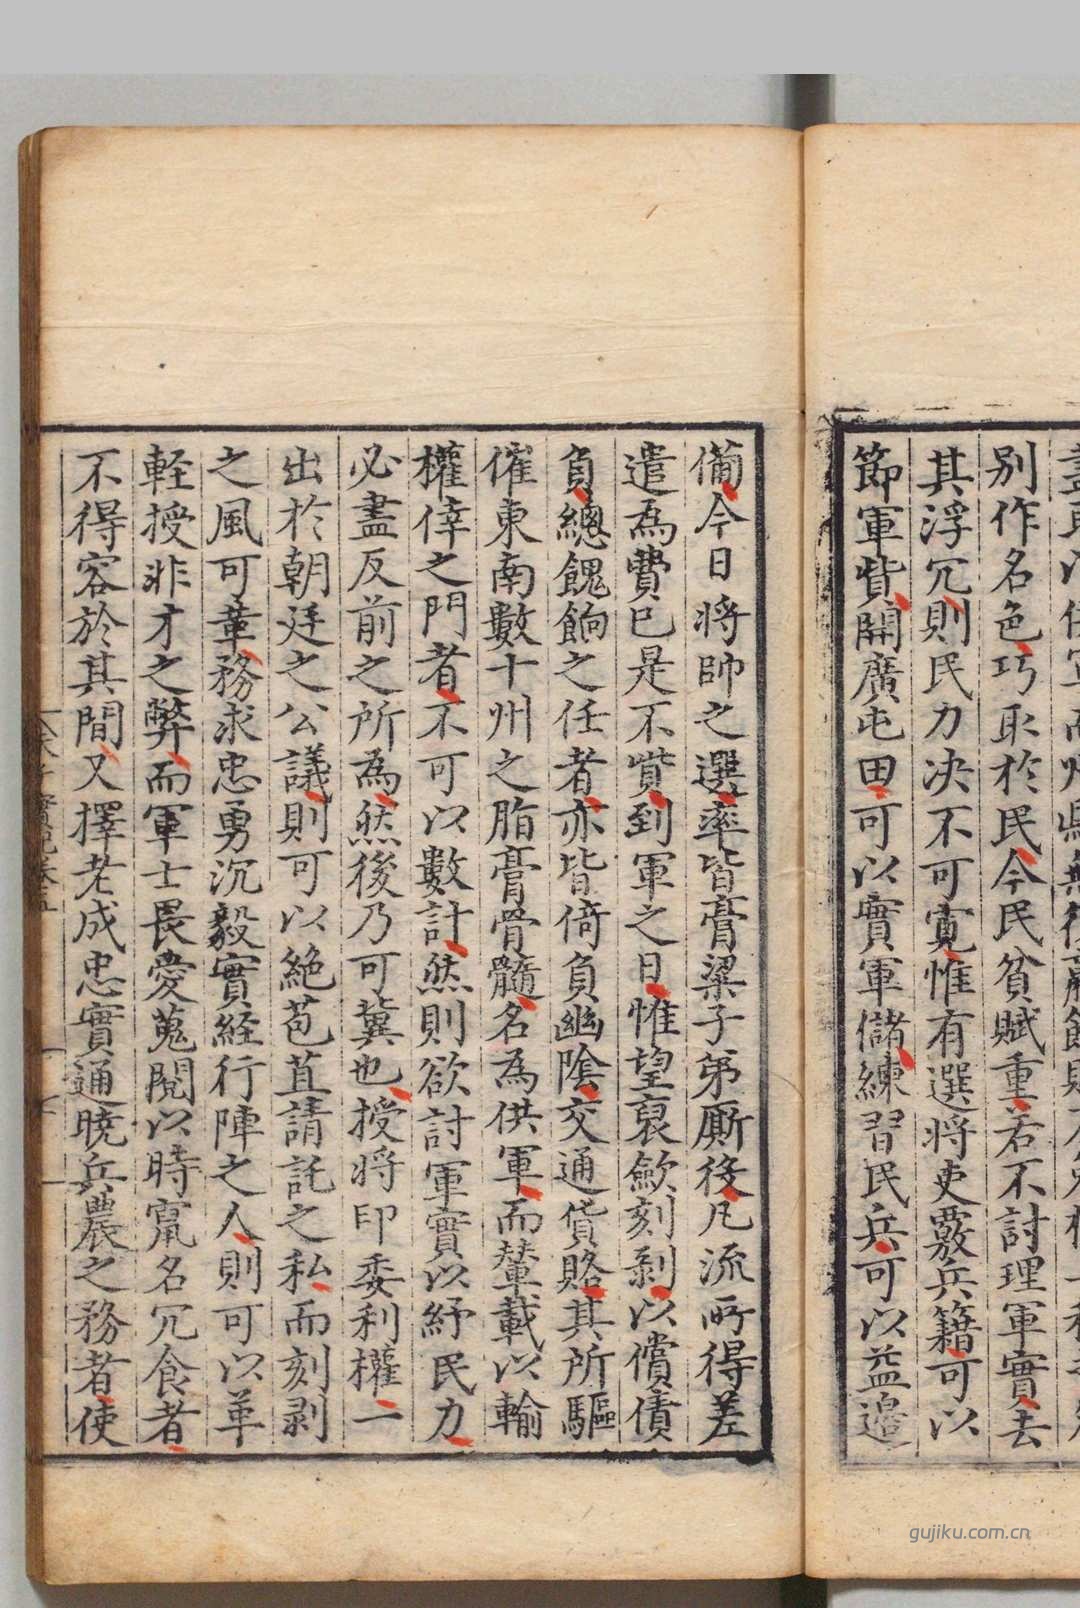 別作名色巧取於民今民貧賦重若不討理軍實去
其浮冗則民力决不可寛惟有選将吏覈兵籍可以
節軍貲開廣屯田可以實軍儲練習民兵可以益邉
僃今日将帥之選率皆膏粱子弟厮役凡流所得差
遣為費已是不貲到軍之日惟望裒歛刻剥以償債
負緫餽餉之任者亦皆倚負幽陰交通貨賂其所驅
催東南數十州之脂膏骨髓名為供軍而輦載以輸
權倖之門者不可以數計然則欲討軍實以紓民力
必盡反前之所為然後乃可冀也授将印委利權一
出於朝廷之公議則可以絶苞苴請託之私而刻剥
之風可革務求忠勇沉毅實經行陣之人則可以革
軽授非才之弊而軍士畏愛蒐閲以時竄名冗食者
不得容於其間又擇老成忠實通曉兵農之務者使
gujiku.com.cn